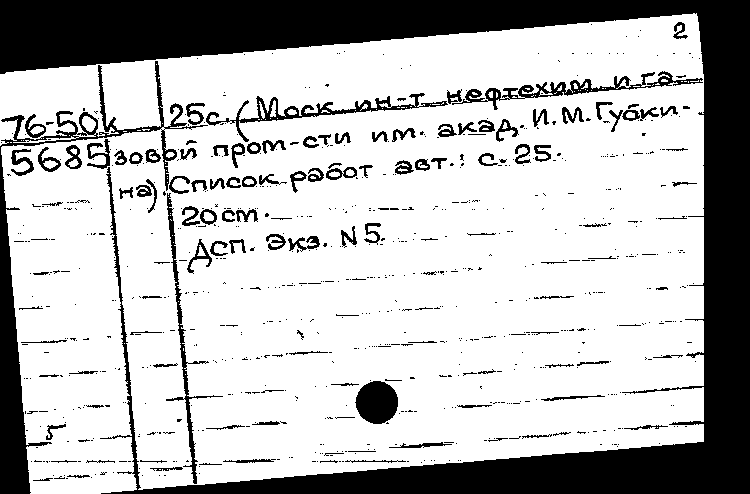 2
76-50к 25с. (Моск ин-т нефтехим и га-
5685 зовой пром-сти им. акад. И.М.Губки-
на). Список работ авт.: с. 25.
20 см.
ДСП. Экз. N 5.
5